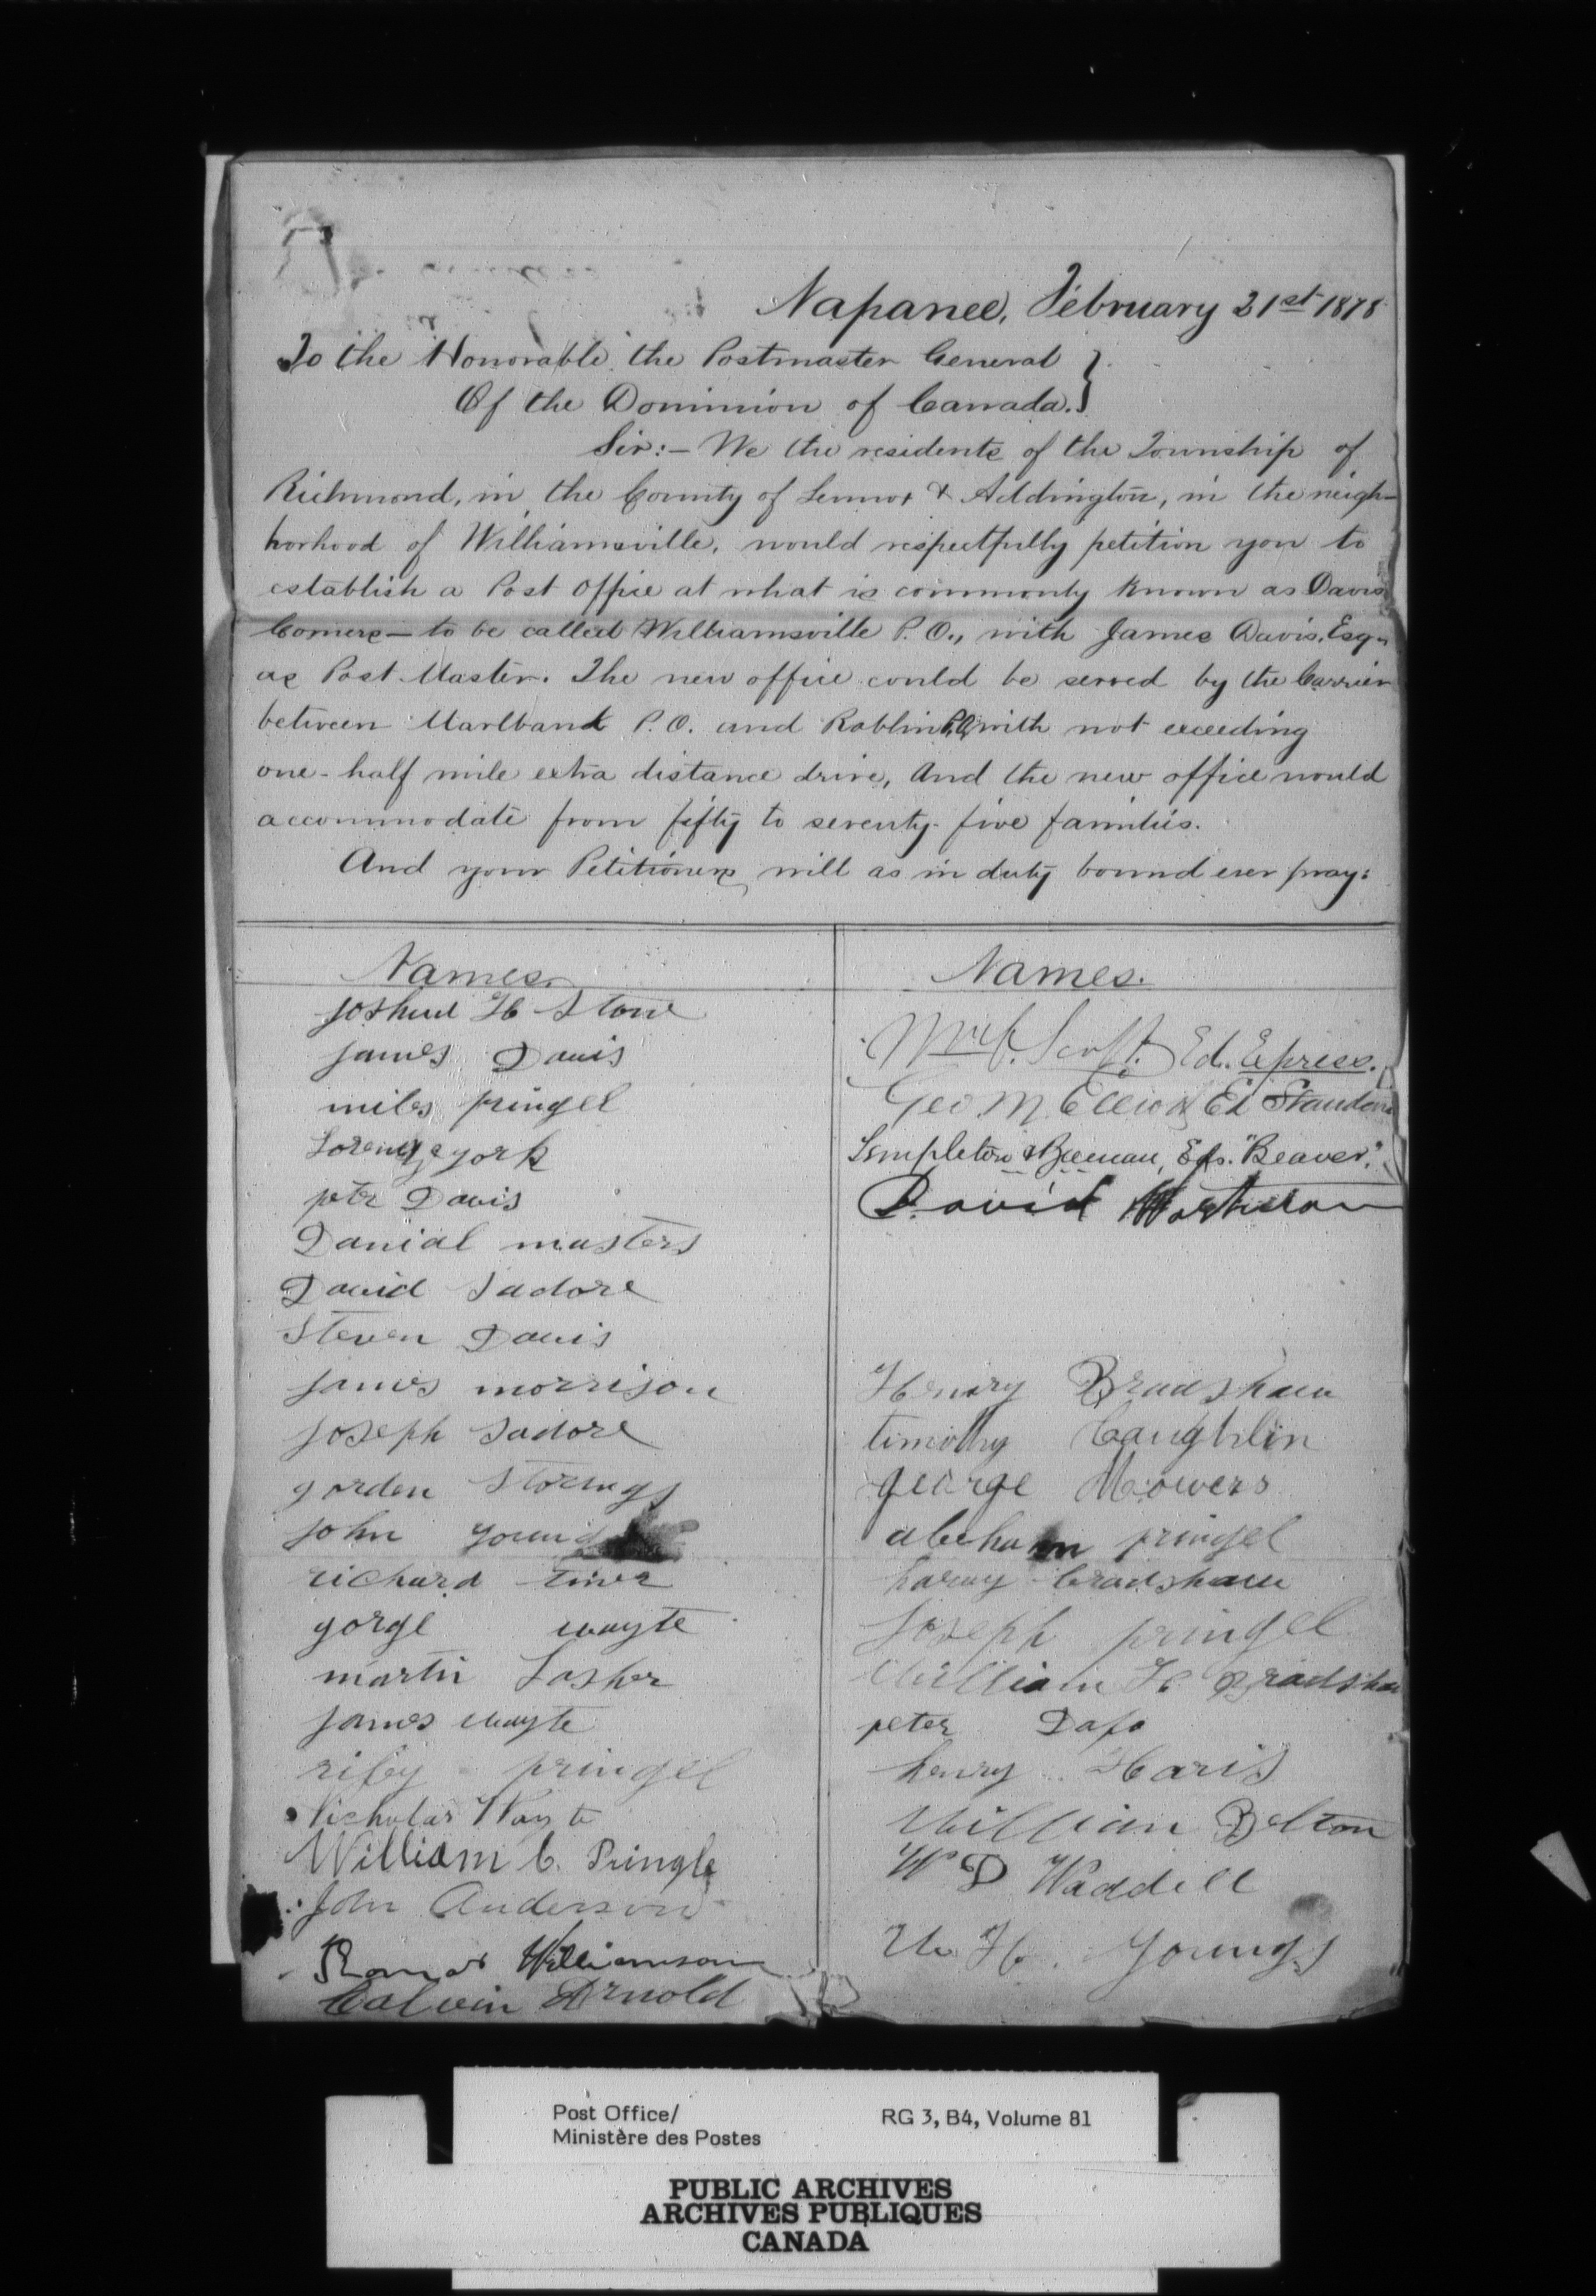 Napanee, February 21st 1878
To the Honorable the Postmaster General
Of the Dominion of Canada.
Sir:— We the residents of the Township of
Richmond, in the County of Lennox & Addington, in the neigh-
borhood of Williamsville, would respectfully petition you to
establish a Post Office at what is commonly known as Davis
Corners — to be called Williamsville P.O., with James Davis, Esq.
as Post Master. The new office could be served by the Carrier
between Marlbank P.O. and Roblin P.O. with not exceeding
one-half mile extra distance drive, And the new office would
accommodate from fifty to seventy-five families.
And your Petitioners will as in duty bound ever pray:
Names.
Joshua H Stone
james Davis
miles pringel
york
petr Davis
Danial masters
David Sadore
Steven Davis
james morrison
joseph Sadore
gorden Storings
john young
richard
gorge wayte
martin Losher
james wayte
pringel
Nicholas Wayte
William C. Pringle
John Anderson
Williamson
Calvin Arnold
Names.
Ed. Express.
Geo. M. Elliott Ed Standard
Templeton & Beeman, Eds. "Beaver".
David
Henry Bradshaw
timothy Coughlin
george Mowers
abeham pringel
harvy bradshaw
joseph pringel
William H Bradshaw
peter Dafo
henry Haris
William Belton
W D Waddell
W. H. Youngs
Post Office/
Ministère des Postes
RG 3, B4, Volume 81
PUBLIC ARCHIVES
ARCHIVES PUBLIQUES
CANADA